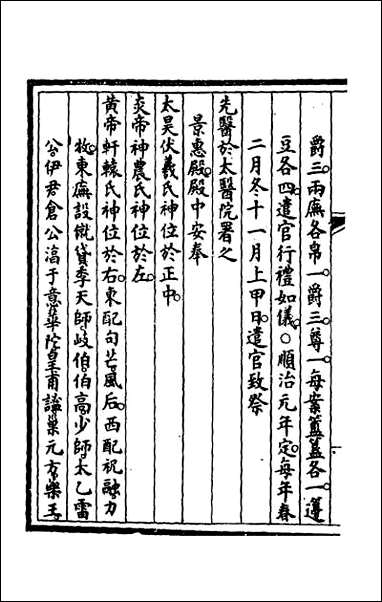 爵三。兩廡各帛一。爵三。尊一。每案簠簋各一。籩
豆各四。遣官行禮如儀。○順治元年定。每年春
二月冬十一月上甲日。遣官致祭
先醫於太醫院署之
景惠殿。殿中安奉
太昊伏羲氏神位於正中。
炎帝神農氏神位於左。
黃帝軒轅氏神位於右。東配句芒風后。西配祝融力
牧。東廡設僦貸季天師岐伯。伯高少師。太乙雷
公。伊君倉公淳于意。華陀。皇甫謐。巢元方。藥王